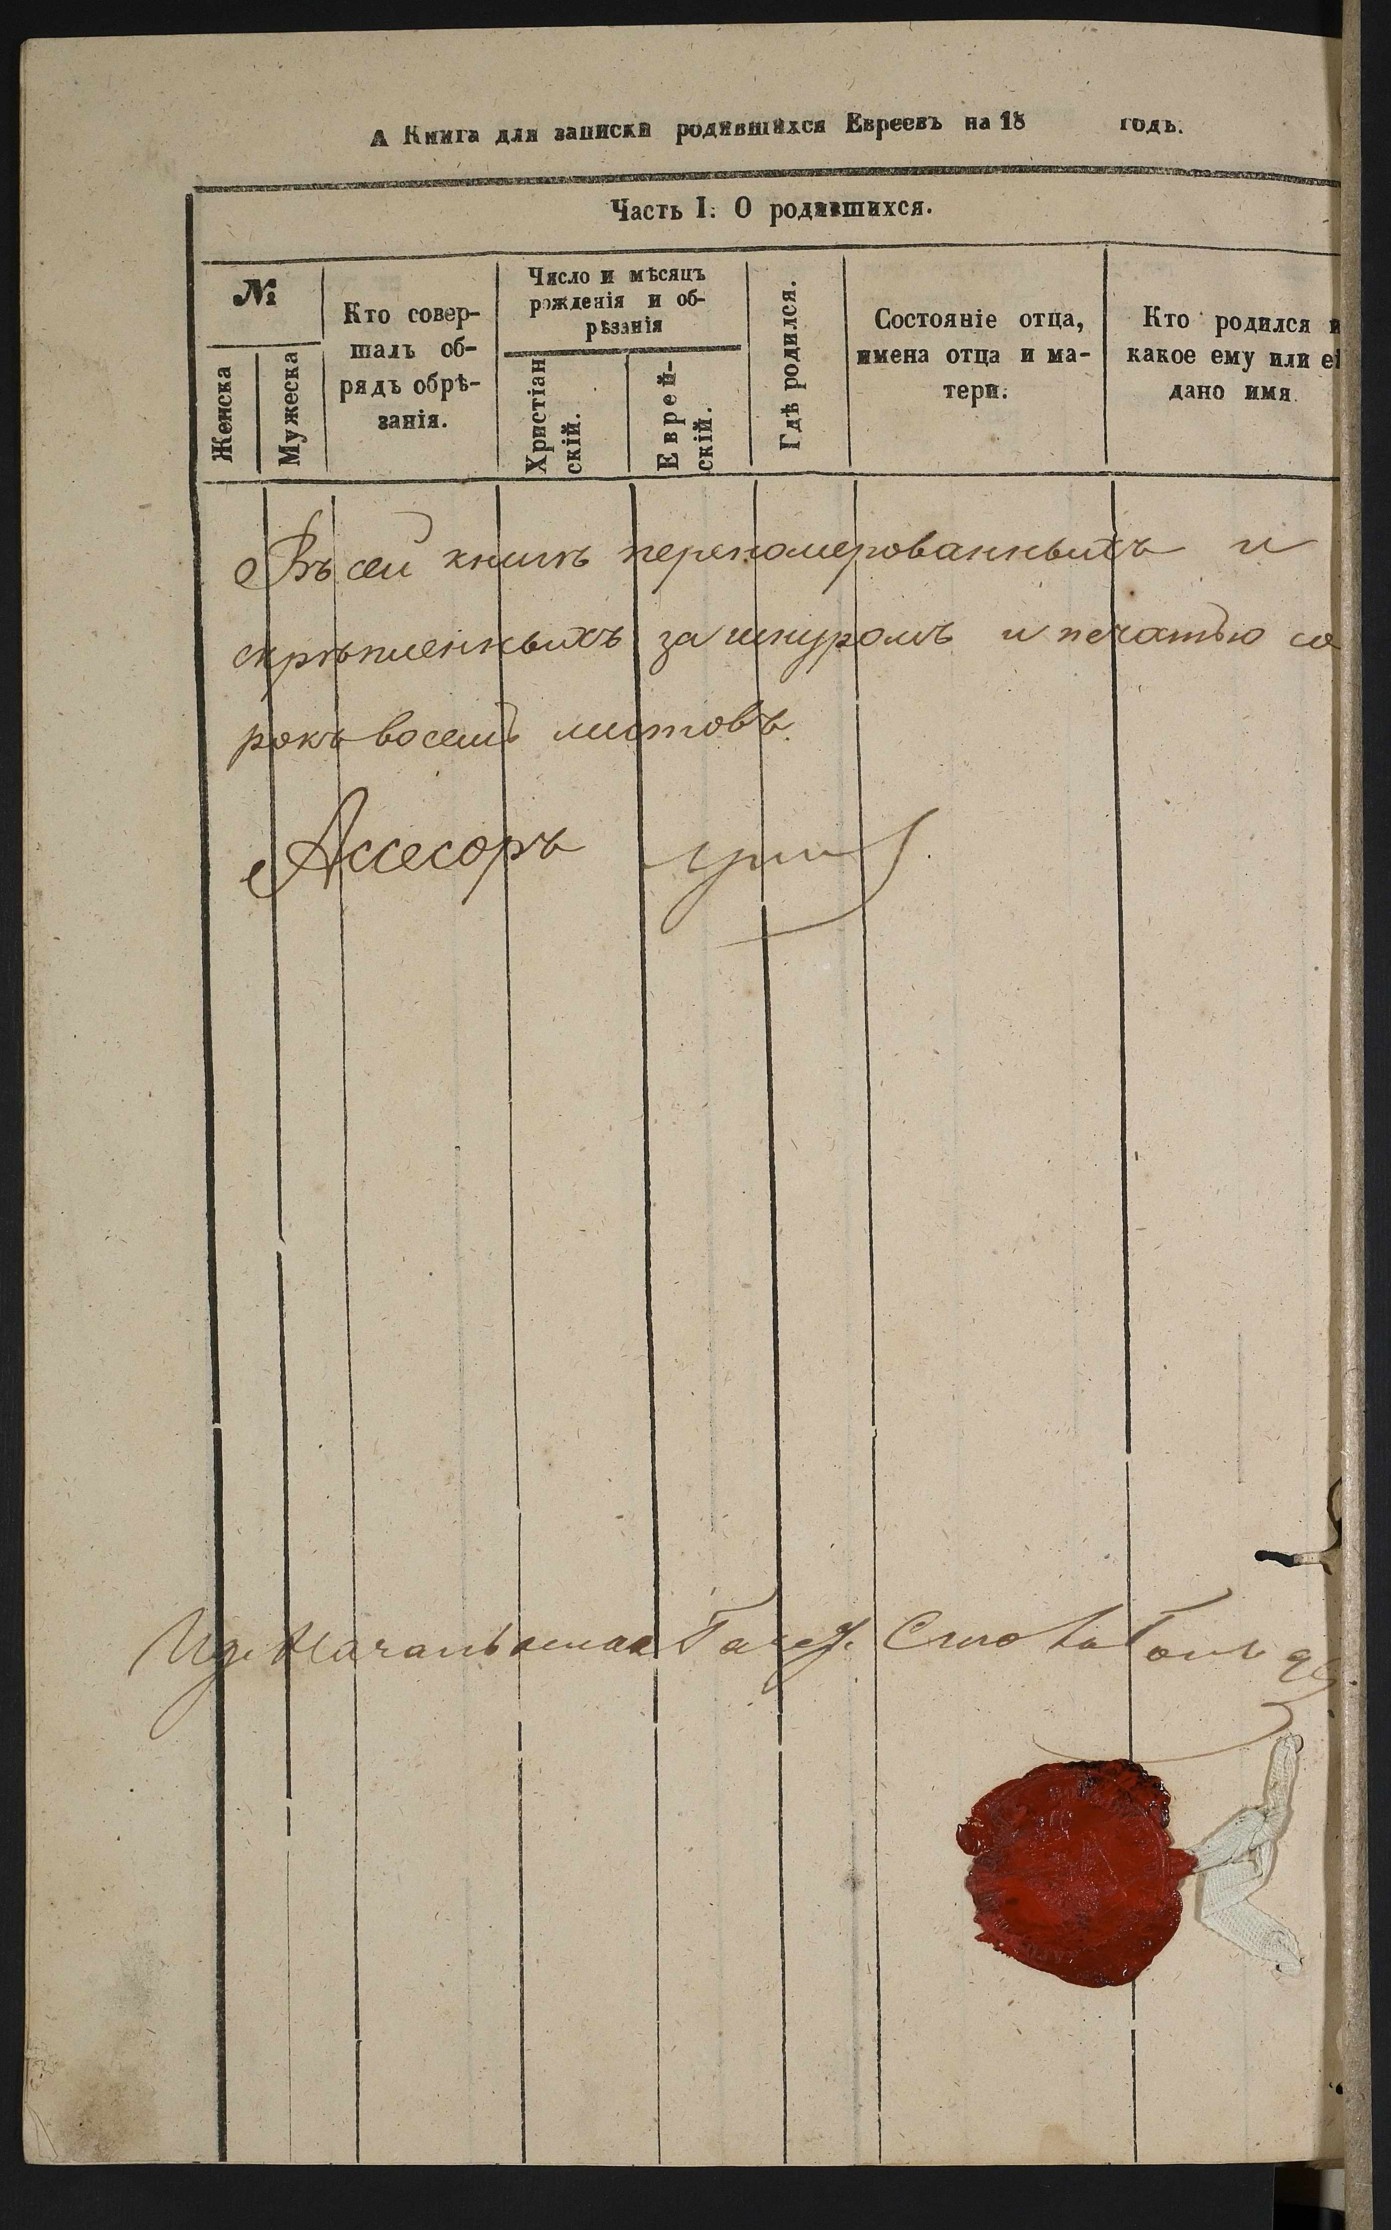 А Книга для записки родившихся Евреевъ на 18 годъ.
Часть I. О родившихся.
№
Женска
Мужеска
Кто совер-
шалъ об-
рядъ обрѣ-
занія.
Число и мѣсяцъ
рожденія и об-
рѣзанія
Христіан
скій.
Еврей-
скій.
Гдѣ родился.
Состояніе отца,
имена отца и ма-
тери.
Кто родился и
какое ему или ей
дано имя.
Въ сей книгѣ перепомерованныхъ и
скрѣпленныхъ за шнуромъ и печатью со
рокъ восемь листовъ.
Ассесоръ
Начальника